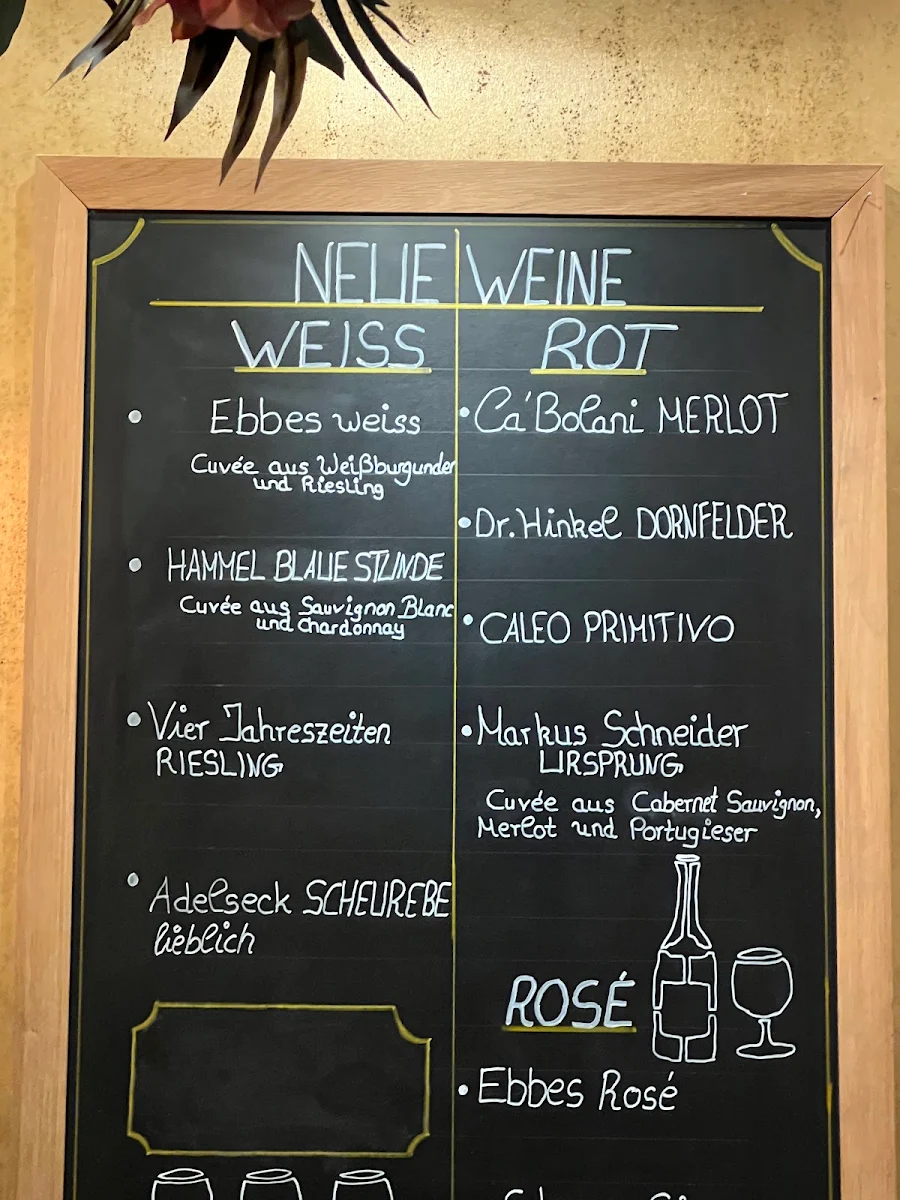 NEUE WEINE
WEISS
• Ebbes weiss
Cuvée aus Weißburgunder
und Riesling
• HAMMEL BLAUE STUNDE
Cuvée aus Sauvignon Blanc
und Chardonnay
• Vier Jahreszeiten
RIESLING
• Adelseck SCHEUREBE
lieblich
ROT
• Ca'Bolani MERLOT
• Dr. Hinkel DORNFELDER
• CALEO PRIMITIVO
• Markus Schneider
URSPRUNG
Cuvée aus Cabernet Sauvignon,
Merlot und Portugieser
ROSÉ
• Ebbes Rosé